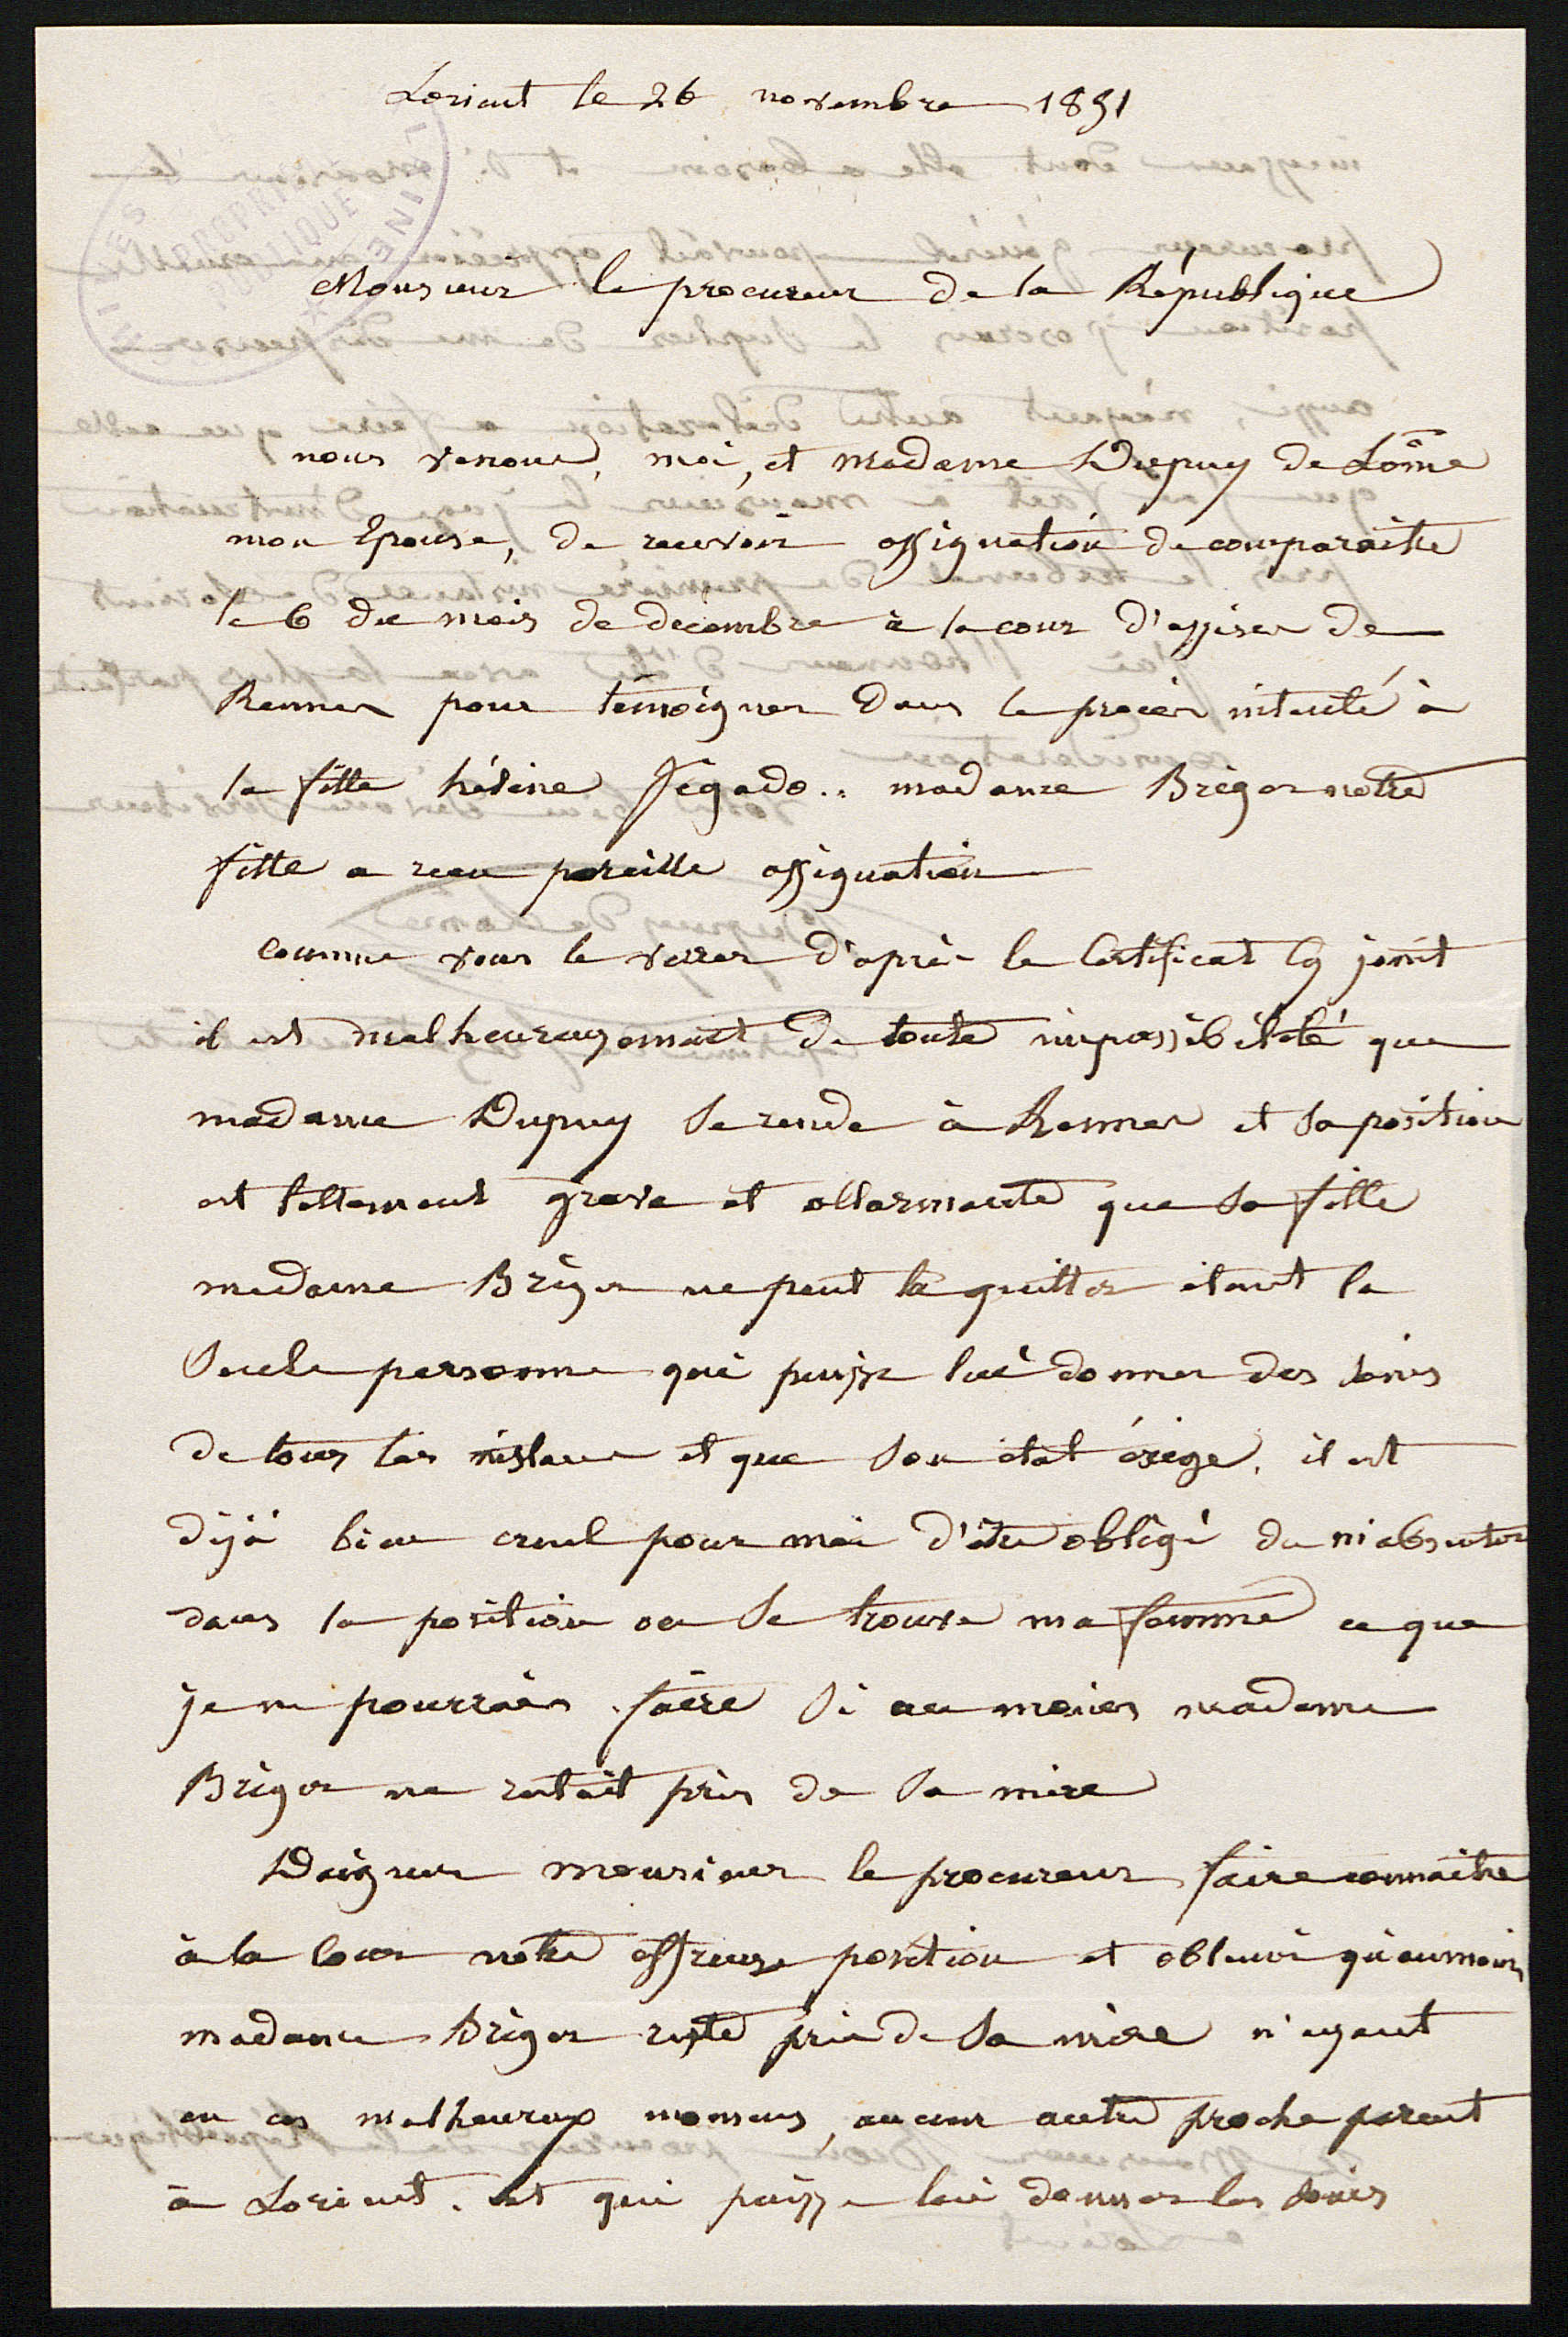 Lorient le 26 novembre 1851
Monsieur le procureur de la République
nous venons, moi, et madame Dupuy de Lôme
mon Epouse, de recevoir assignation de comparaitre
le 6 du mois de decembre à la cour d'assises de
Rennes pour témoigner dans le procès intenté à
la fille hélène Jégado.. madame Bréger notre
fille a recu pareille assignation
comme vous le verrez d'après le Certificat Cy joint
il est malheureusement de toute impossibilité que
madame Dupuy Se rende à Rennes et Sa position
est tellement grave et allarmante que Sa fille
madame Bréger ne peut la quitter étant la
Seule personne qui puisse lui donner des Soins
de tous les instans et que Son état éxige. il est
déjà bien cruel pour moi d'être obligé de m'absenter
dans la position ou Se trouve ma femme ce que
je ne pourrais faire Si au moins madame
Bréger ne restait près de Sa mère
Daignez monsieur le procureur faire connaitre
à la Cour notre affreuse position et obtenir qu'aumoins
madame Bréger reste près de Sa mère n'ayant
en ces malheureux momens, aucun autre proche parent
à Lorient. et qui puisse lui donner les Soins